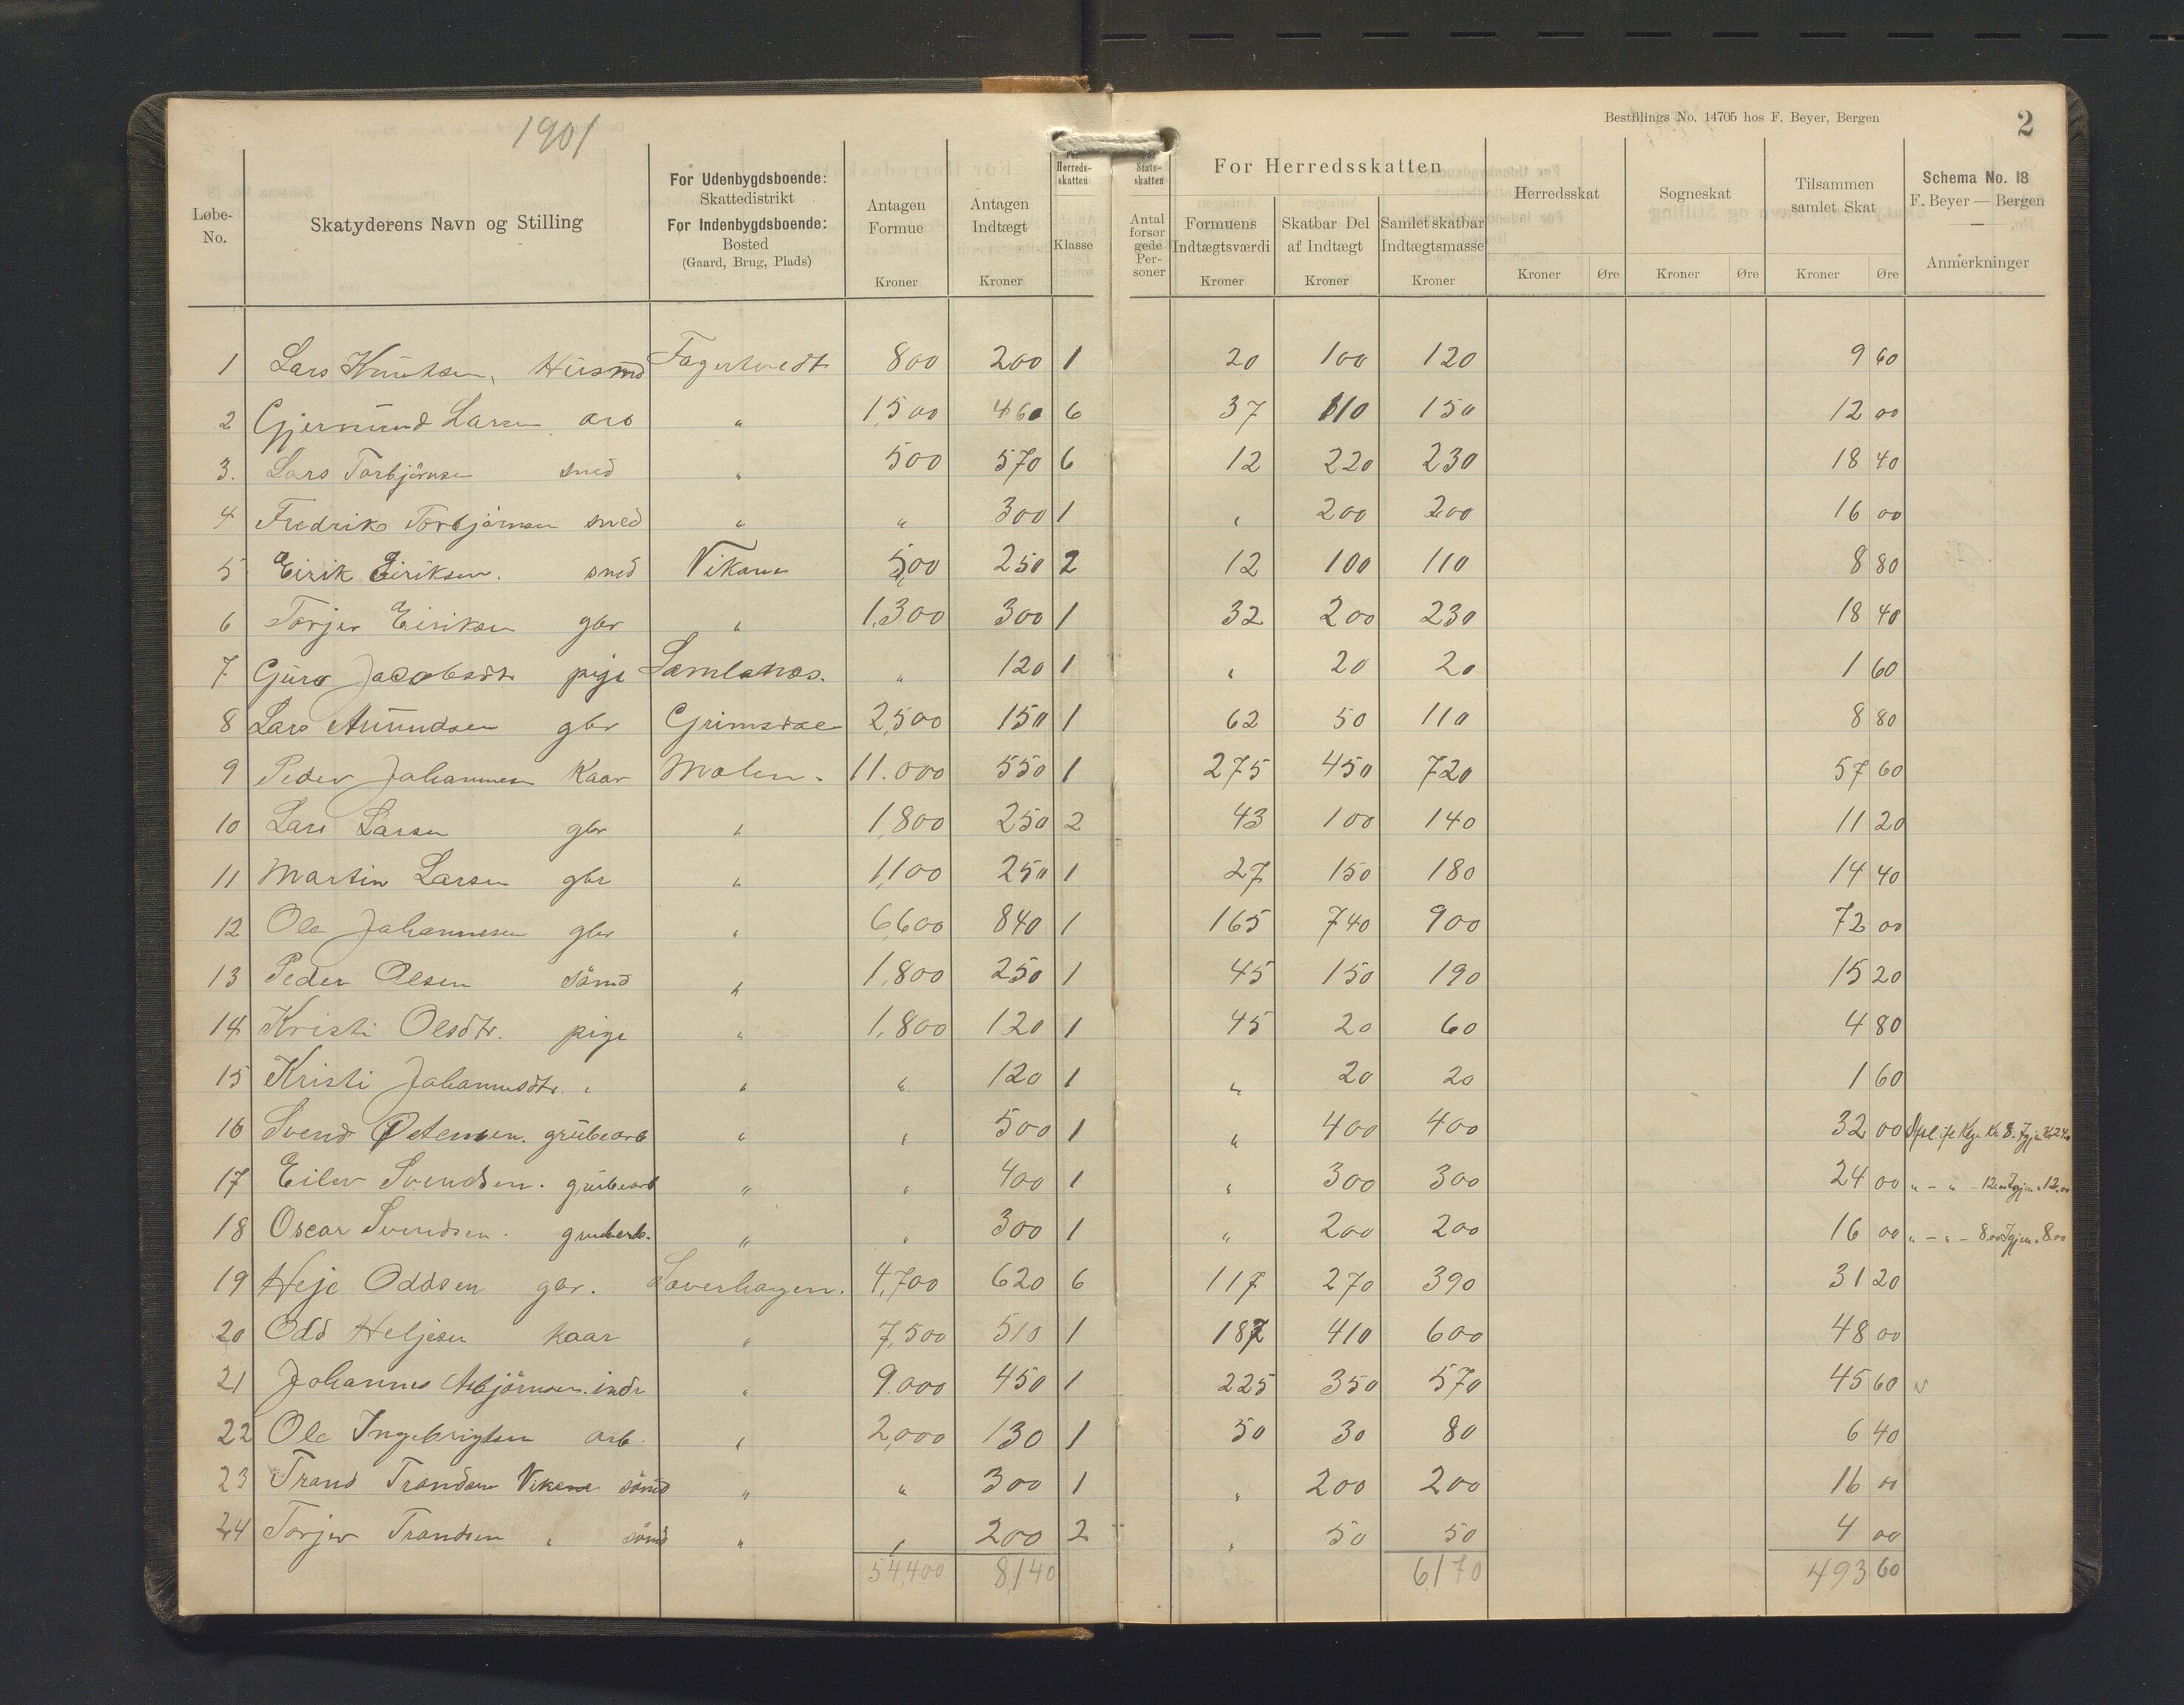 1901
Bestillings No. 14705 hos F. Beyer, Bergen
2
Løbe-No. | Skatyderens Navn og Stilling | For Udenbygdsboende: Skattedistrikt For Indenbygdsboende: Bosted (Gaard, Brug, Plads) | Antagen Formue Kroner | Antagen Indtægt Kroner | For Herreds-skatten Klasse | For Stats-skatten Antal forsørgede Personer | For Herredsskatten Formuens Indtægtsværdi Kroner | Skatbar Del af Indtægt Kroner | Samlet skatbar Indtægtsmasse Kroner | Herredsskat Kroner Øre | Sogneskat Kroner Øre | Tilsammen samlet Skat Kroner Øre | Schema No. 18 F. Beyer — Bergen Anmerkninger
1 Lars Knutsen, Husmd Fagertvedt 800 200 1 20 100 120 9 60
2 Gjermund Larsen arb " 1,500 460 6 37 110 150 12 00
3. Lars Torbjörnsen smed " 500 570 6 12 220 230 18 40
4 Fredrik Torbjörnsen smed " " 300 1 " 200 200 16 00
5 Eirik Eiriksen. smed Vikane 500 250 2 12 100 110 8 80
6 Torjer Eiriksen gbr " 1,300 300 1 32 200 230 18 40
7 Guro Jacobsdtr pige Samlenæs. " 120 1 " 20 20 1 60
8 Lars Amundsen gbr Grimsdae 2,500 150 1 62 50 110 8 80
9 Peder Johannesen Kaar Molen. 11.000 550 1 275 450 720 57 60
10 Lars Larsen gbr " 1,800 250 2 43 100 140 11 20
11 Martin Larsen gbr " 1,100 250 1 27 150 180 14 40
12 Ole Johannesen gbr " 6,600 840 1 165 740 900 72 00
13 Peder Olsen sömd " 1,800 250 1 45 150 190 15 20
14 Kristi Olsdtr. pige " 1,800 120 1 45 20 60 4 80
15 Kristi Johannesdtr. " " " 120 1 " 20 20 1 60
16 Svend Petersen. grubearb " " 500 1 " 400 400 32 00
17 Eilev Svendsen. grubearb " " 400 1 " 300 300 24 00 " - " - 12.00 Igjen " 12.00
18 Oscar Svendsen. grubearb. " " 300 1 " 200 200 16 00 " - " - 8.00 Igjen " 8.00
19 Helje Oddsen gbr. Laverhagen. 4,700 620 6 117 270 390 31 20
20 Odd Heljesen kaar " 7,500 510 1 187 410 600 48 00
21 Johannes Asbjörnsen. indr " 9.000 450 1 225 350 570 45 60
22 Ole Ingebrigtsen arb. " 2,000 130 1 50 30 80 6 40
23 Trand Trandsen Vikane sömd " " 300 1 " 200 200 16 00
24 Torjer Trandsen " sömd " " 200 2 " 50 50 4 00
54,400 8,140 6,170 493 60